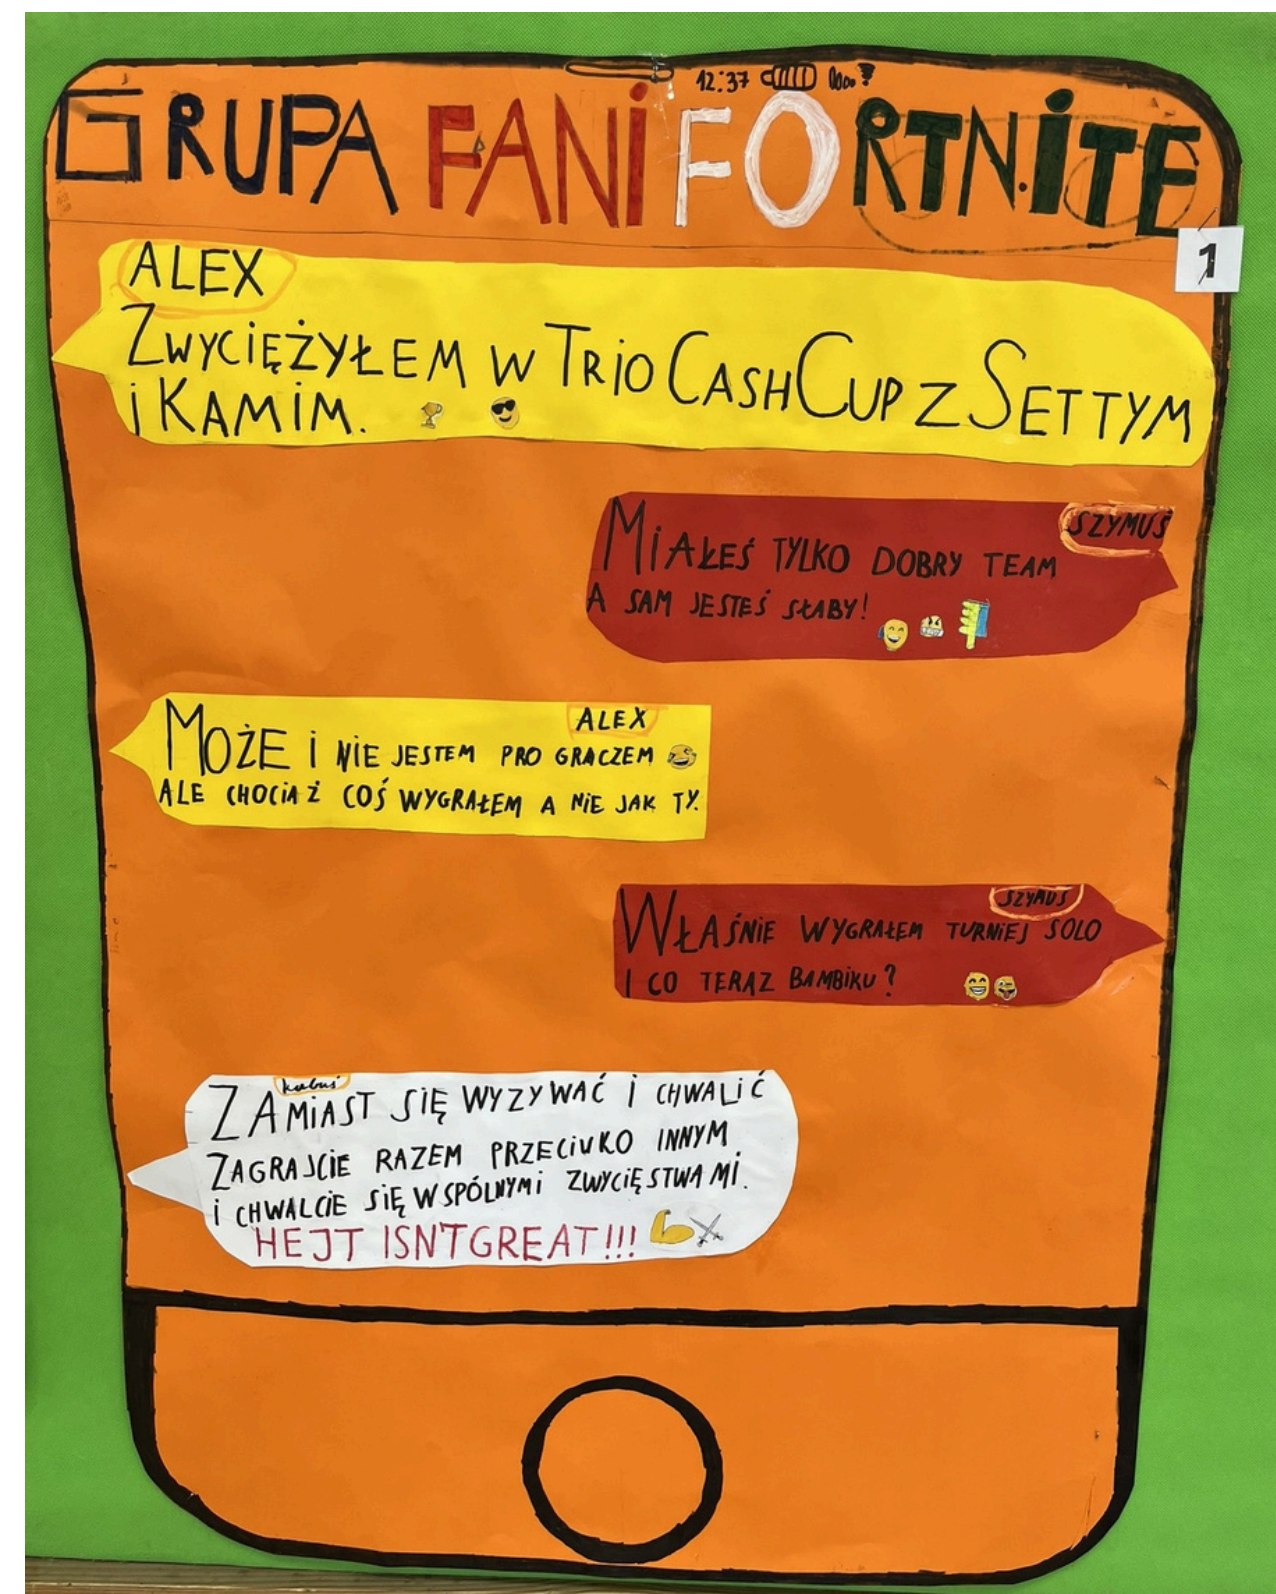 12:37
GRUPA FANI FORTNITE
1
ALEX
ZWYCIĘŻYŁEM W TRIO CASH CUP Z SETTYM
i KAMIM.
SZYMUŚ
MIAŁEŚ TYLKO DOBRY TEAM
A SAM JESTEŚ SŁABY!
ALEX
MOŻE i NIE JESTEM PRO GRACZEM
ALE CHOCIAŻ COŚ WYGRAŁEM A NIE JAK TY.
SZYMUŚ
WŁAŚNIE WYGRAŁEM TURNIEJ SOLO
I CO TERAZ BAMBIKU?
kubuś
ZAMIAST SIĘ WYZYWAĆ i CHWALIĆ
ZAGRAJCIE RAZEM PRZECIWKO INNYM
i CHWALCIE SIĘ WSPÓLNYMI ZWYCIĘSTWAMI.
HEJT ISN'T GREAT!!!